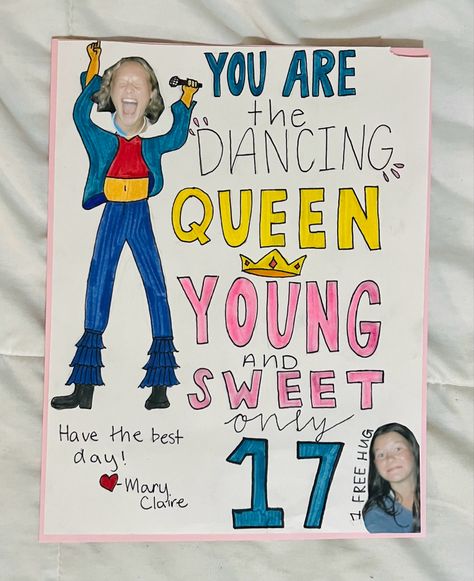 YOU ARE
the
"DANCING"
QUEEN
YOUNG
AND
SWEET
only
17
Have the best
day!
-Mary
Claire
1 FREE HUG